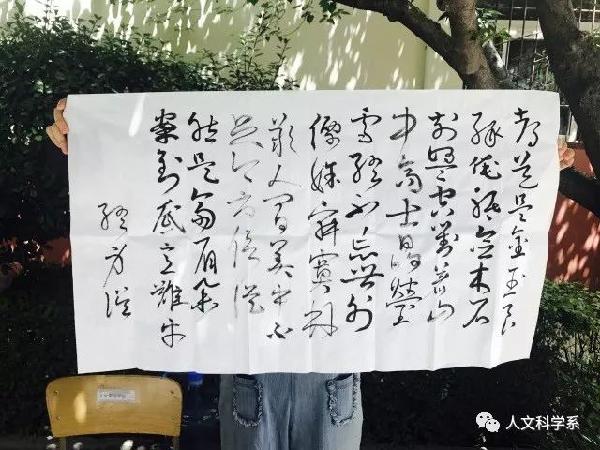 都道是金玉良
缘俺只念木石
前盟空对着山
中高士晶莹
雪终不忘世外
仙姝寂寞林
叹人间美中不
足今方信纵
然是齐眉举
案到底意难平
终身误
人文科学系